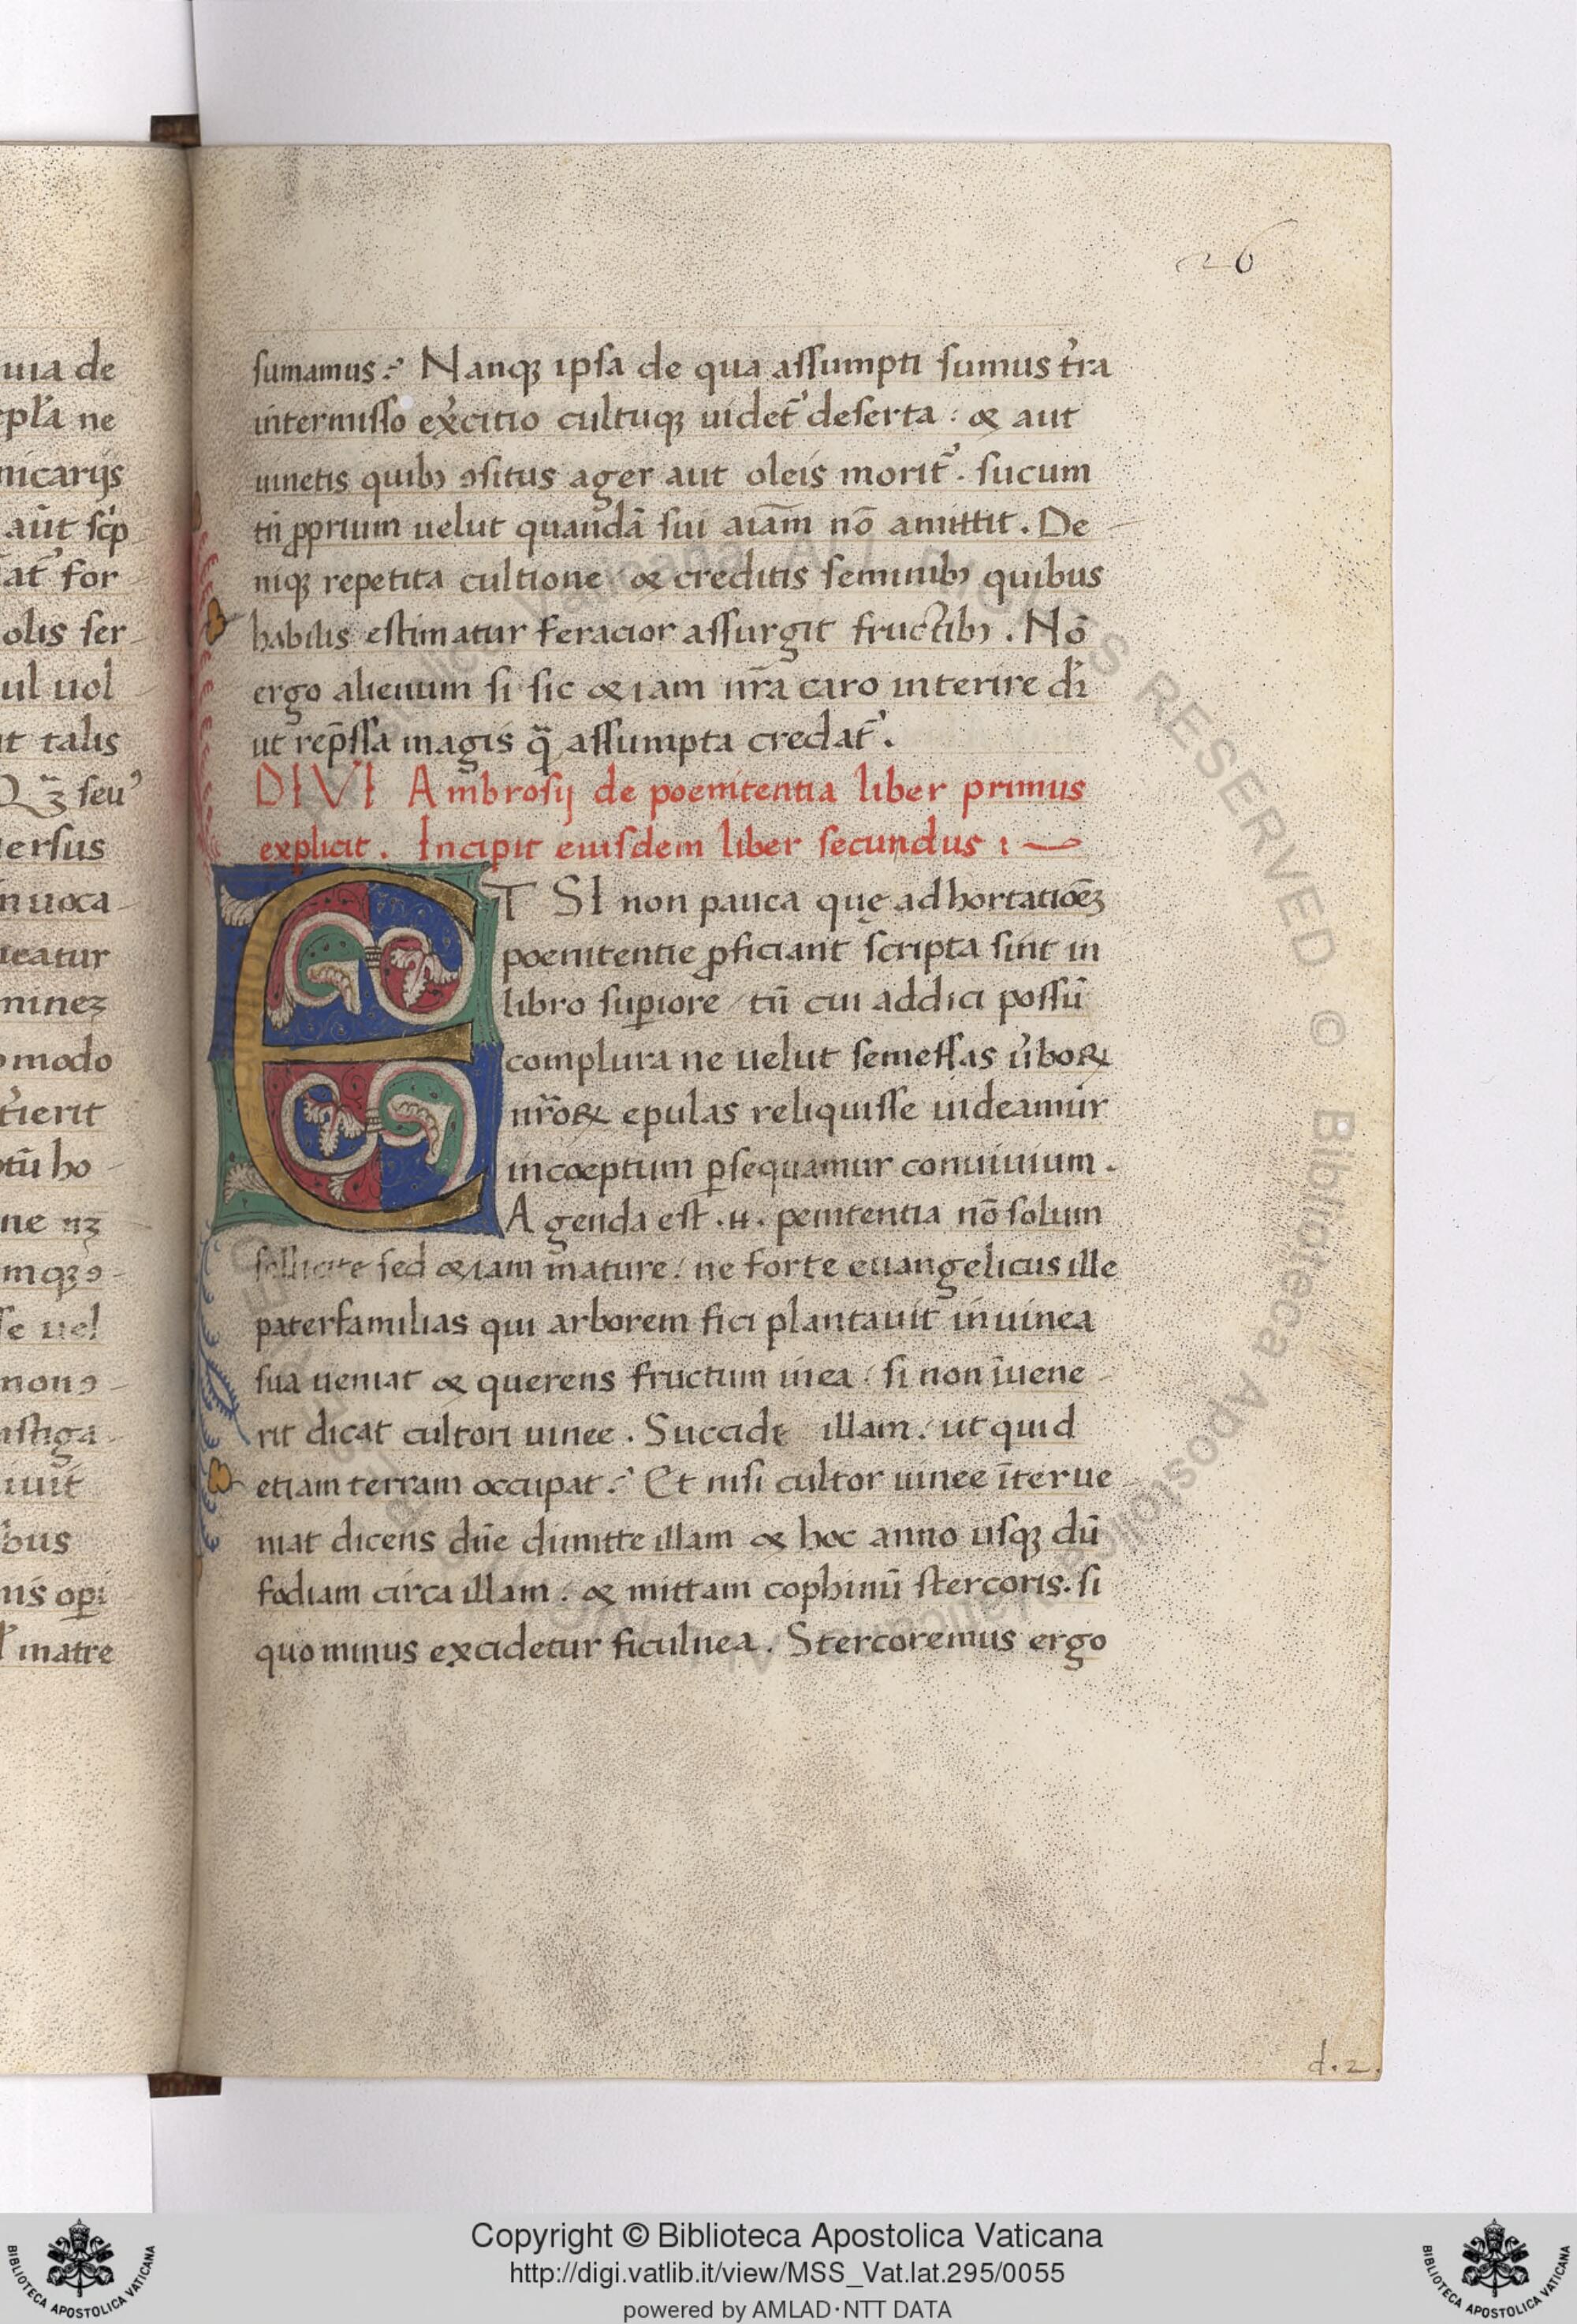 uia de
epła ne
nicarijs
aūt scp̄
at᷑ for
olis ser-
ul uol
ut talis
Qꝫ̃ seu᾽
uersus
n uoca-
ueatur
minez
modo
t᾽ierit
tū ho-
ne nꝫ
mqꝫ ꝯ-
se uel
non ꝯ-
astiga-
iuit
bus
nis op̱i
matre
26
sumamus? Nanqꝫ ipsa de qua assumpti sumus t᾽ra
intermisso ex᾽citio cultuqꝫ uidet᷑ deserta: & aut
uinetis quibꝫ ꝯsitus ager aut oleis morit᷑. sucum
tn̄ ꝓprium uelut quandā sui aīam nō amittit. De-
niqꝫ repetita cultione & creditis seminibꝫ quibus
habilis estimatur feracior assurgit fructibꝫ. Nō
ergo alienum si sic &iam nr̄a caro interire dr̄
ut rep̄ssa magis q̄ assumpta credat᷑.
DIVI Ambrosij de poenitentia liber primus
explicit. Incipit eiusdem liber secundus :—
ET SI non pauca quę ad hortatiōeꝫ
poenitentie ꝓficiant scripta sint in
libro suꝑiore / tn̄ cui addici possū
complura ne uelut semessas u᾽boꝝ
nr̄oꝝ epulas reliquisse uideamur
incoeptum ꝑsequamur conuiuium.
Agenda est .n. penitentia nō solum
sollicite sed &iam mature: ne forte euangelicus ille
paterfamilias qui arborem fici plantauit in uinea
sua ueniat & querens fructum in ea: si non īuene-
rit dicat cultori uinee. Succide illam: ut quid
etiam terram occupat? Et nisi cultor uinee īterue-
niat dicens dn̄e dimitte illam & hoc anno usqꝫ dū
fodiam circa illam: & mittam cophinū stercoris. si
quo minus excidetur ficulnea. Stercoremus ergo
d.2.
Copyright © Biblioteca Apostolica Vaticana
http://digi.vatlib.it/view/MSS_Vat.lat.295/0055
powered by AMLAD·NTT DATA
BIBLIOTECA APOSTOLICA VATICANA
BIBLIOTECA APOSTOLICA VATICANA